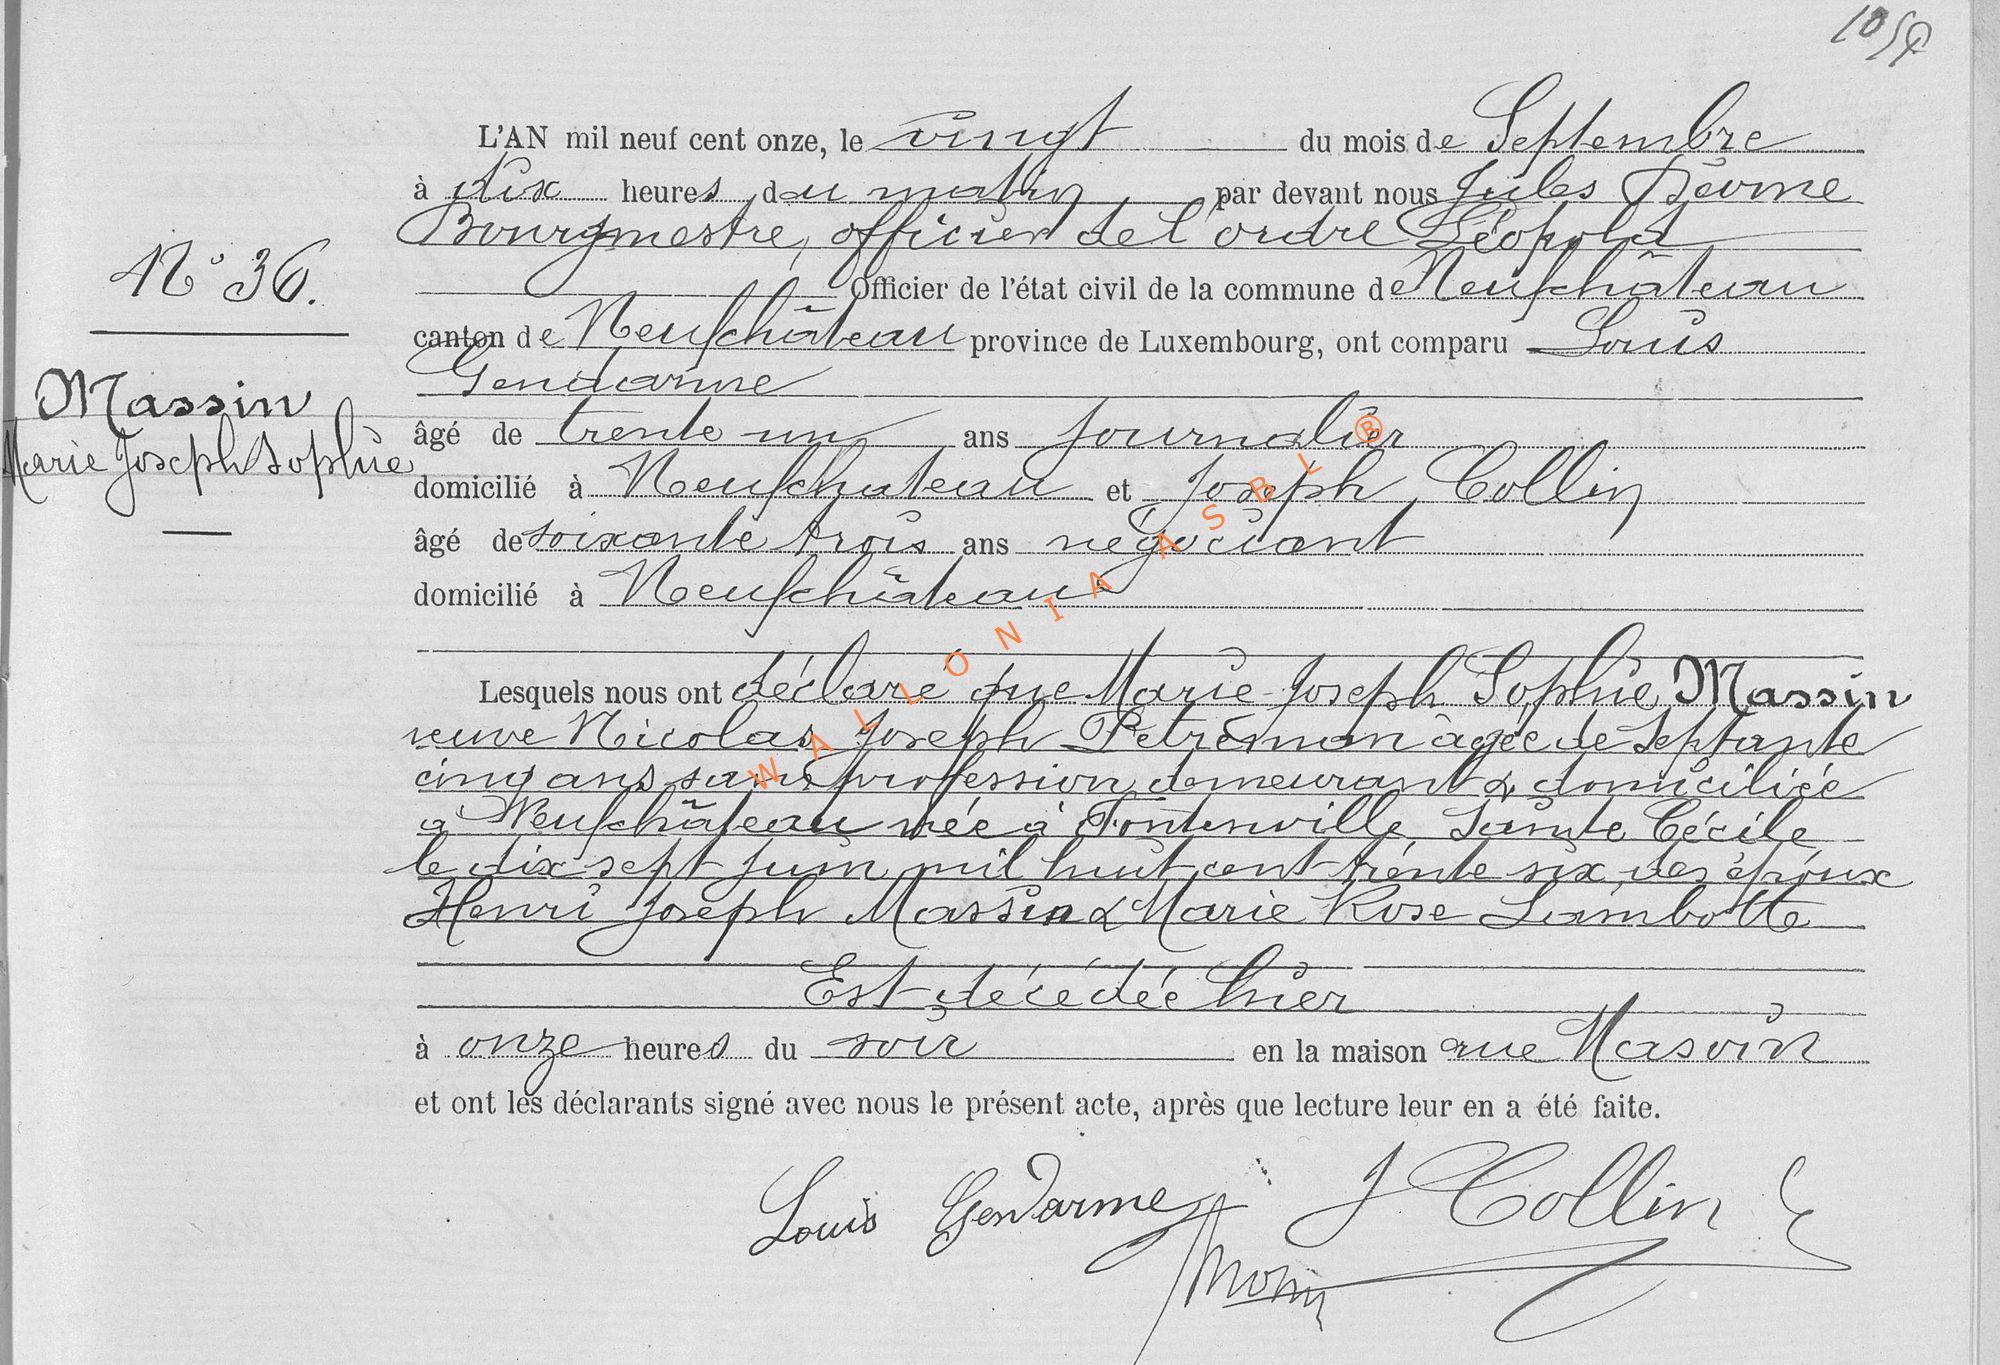 L'AN mil neuf cent onze, le vingt du mois de Septembre
à dix heures du matin par devant nous Jules
Bourgmestre, officier de l'ordre Léopold
Officier de l'état civil de la commune de Neufchâteau
N° 36.
canton de Neufchâteau province de Luxembourg, ont comparu Louis
Gendarme
Massin
Marie Joseph Sophie
âgé de trente un ans journalier
domicilié à Neufchateau et Joseph Collin
âgé de soixante trois ans négociant
domicilié à Neufchâteau
WALLONIA ASBL ®
Lesquels nous ont déclaré que Marie Joseph Sophie Massin
veuve Nicolas Joseph Petrémon âgée de septante
cinq ans sans profession demeurant & domiciliée
a Neufchâteau née à Fontenville Sainte Cécile
le dix sept juin mil huit cent trente six, des époux
Henri Joseph Massin & Marie Rose Lambotte
Est décédée hier
à onze heures du soir en la maison rue
et ont les déclarants signé avec nous le présent acte, après que lecture leur en a été faite.
Louis Gendarme J Collin